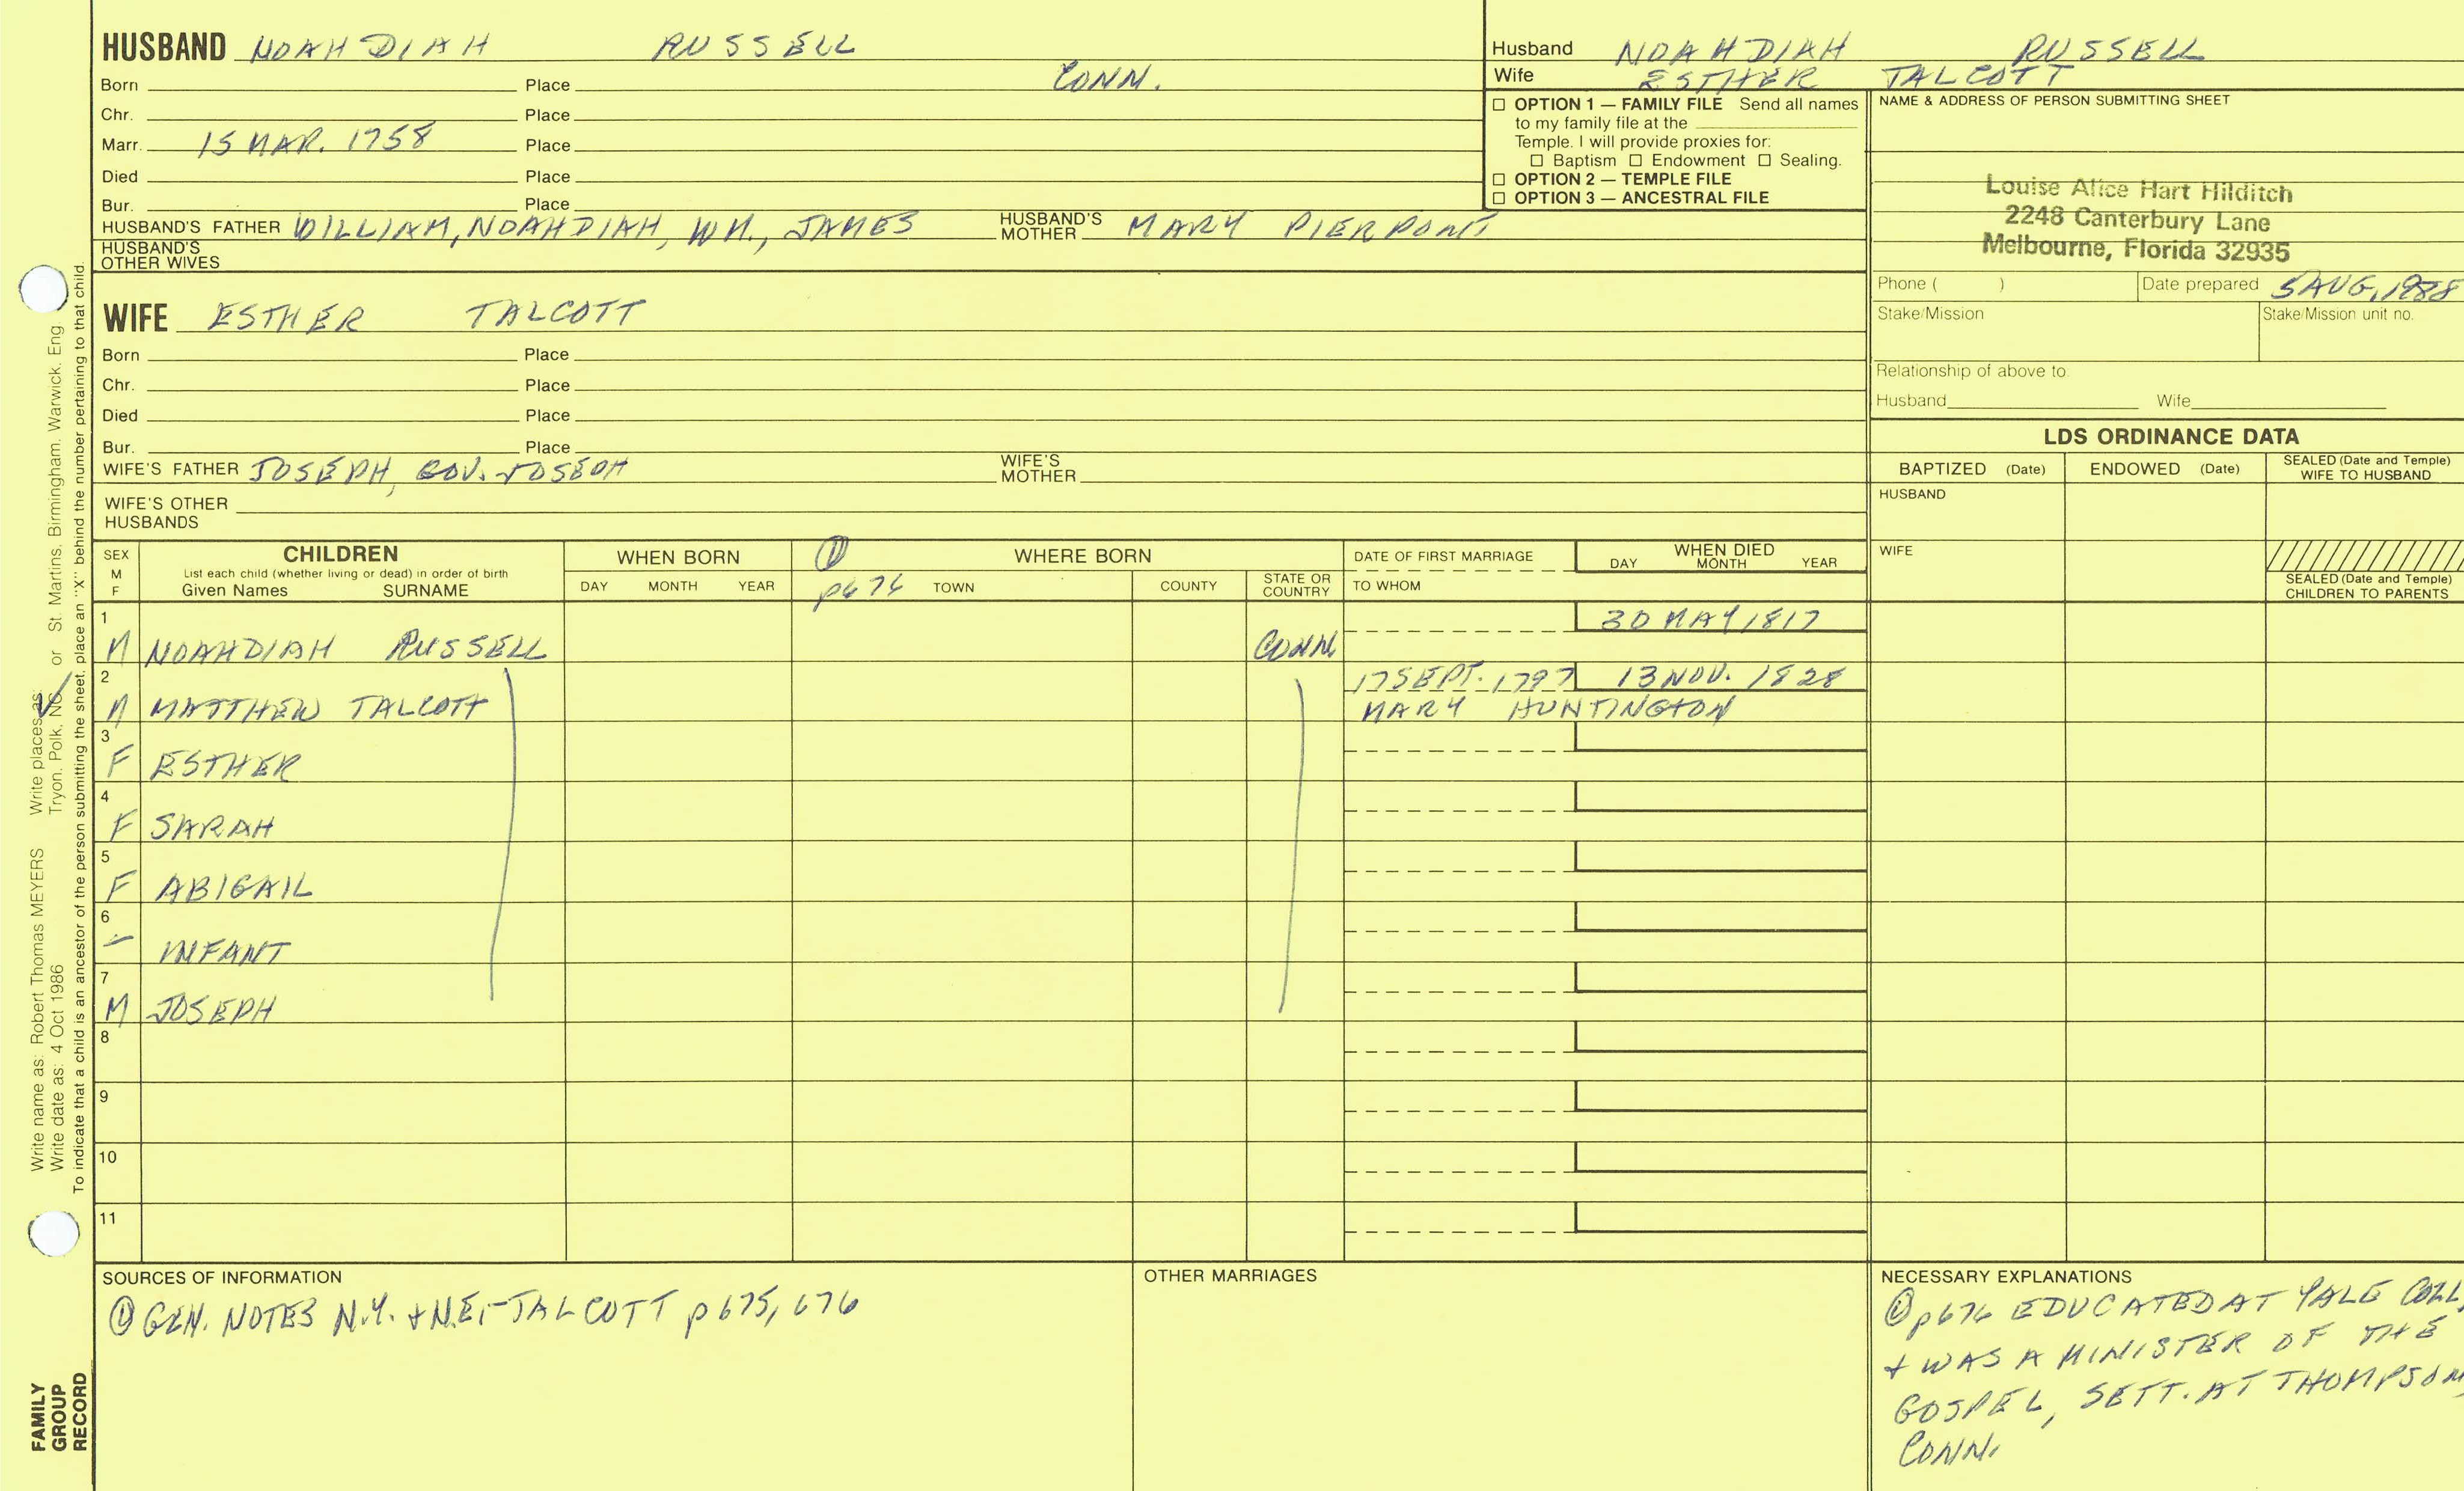 HUSBAND NOAHDIAH RUSSELL
Born Place CONN.
Chr. Place
Marr. 15 MAR. 1758 Place
Died Place
Bur. Place
HUSBAND'S FATHER WILLIAM, NOAHDIAH, WM., JAMES HUSBAND'S MOTHER MARY PIERPONT
HUSBAND'S OTHER WIVES
Husband NOAHDIAH RUSSELL
Wife ESTHER TALCOTT
☐ OPTION 1 — FAMILY FILE Send all names
to my family file at the
Temple. I will provide proxies for:
☐ Baptism ☐ Endowment ☐ Sealing.
☐ OPTION 2 — TEMPLE FILE
☐ OPTION 3 — ANCESTRAL FILE
NAME & ADDRESS OF PERSON SUBMITTING SHEET
Louise Alice Hart Hilditch
2248 Canterbury Lane
Melbourne, Florida 32935
Phone ( ) Date prepared 5 AUG, 1988
Stake/Mission Stake/Mission unit no.
Relationship of above to
Husband Wife
WIFE ESTHER TALCOTT
Born Place
Chr. Place
Died Place
Bur. Place
WIFE'S FATHER JOSEPH, GOV. JOSEPH WIFE'S MOTHER
WIFE'S OTHER
HUSBANDS
LDS ORDINANCE DATA
BAPTIZED (Date) ENDOWED (Date) SEALED (Date and Temple) WIFE TO HUSBAND
HUSBAND
WIFE
SEALED (Date and Temple)
CHILDREN TO PARENTS
SEX M F CHILDREN
List each child (whether living or dead) in order of birth
Given Names SURNAME
WHEN BORN
DAY MONTH YEAR
① p676
WHERE BORN
TOWN COUNTY STATE OR COUNTRY
DATE OF FIRST MARRIAGE
TO WHOM
WHEN DIED
DAY MONTH YEAR
1 M NOAHDIAH RUSSELL CONN. 30 MAY 1817
2 M MATTHEW TALCOTT 17 SEPT. 1797 13 NOV. 1828
MARY HUNTINGTON
3 F ESTHER
4 F SARAH
5 F ABIGAIL
6 – INFANT
7 M JOSEPH
8
9
10
11
SOURCES OF INFORMATION
① GEN. NOTES N.Y. + N.E. - TALCOTT p 675, 676
OTHER MARRIAGES
NECESSARY EXPLANATIONS
① p676 EDUCATED AT YALE COLL,
+ WAS A MINISTER OF THE
GOSPEL, SETT. AT THOMPSON,
CONN.
Write name as: Robert Thomas MEYERS Write places as:
Write date as: 4 Oct 1986 Tryon, Polk, NC or St. Martins, Birmingham, Warwick, Eng.
To indicate that a child is an ancestor of the person submitting the sheet, place an "X" behind the number pertaining to that child.
FAMILY
GROUP
RECORD